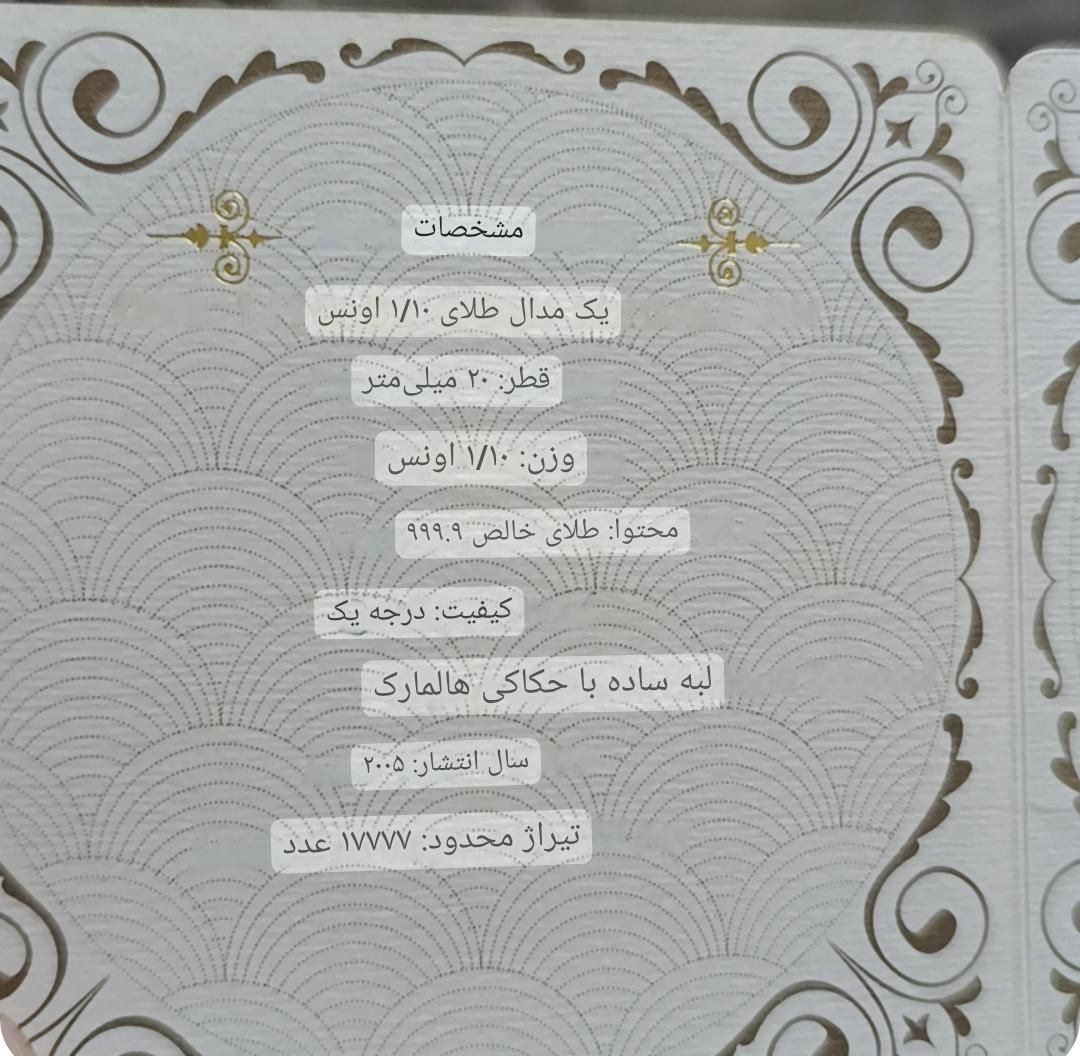 مشخصات
یک مدال طلای ۱/۱۰ اونس
قطر: ۲۰ میلی‌متر
وزن: ۱/۱۰ اونس
محتوا: طلای خالص ۹۹۹.۹
کیفیت: درجه یک
لبه ساده با حکاکی هالمارک
سال انتشار: ۲۰۰۵
تیراژ محدود: ۱۷۷۷۷ عدد